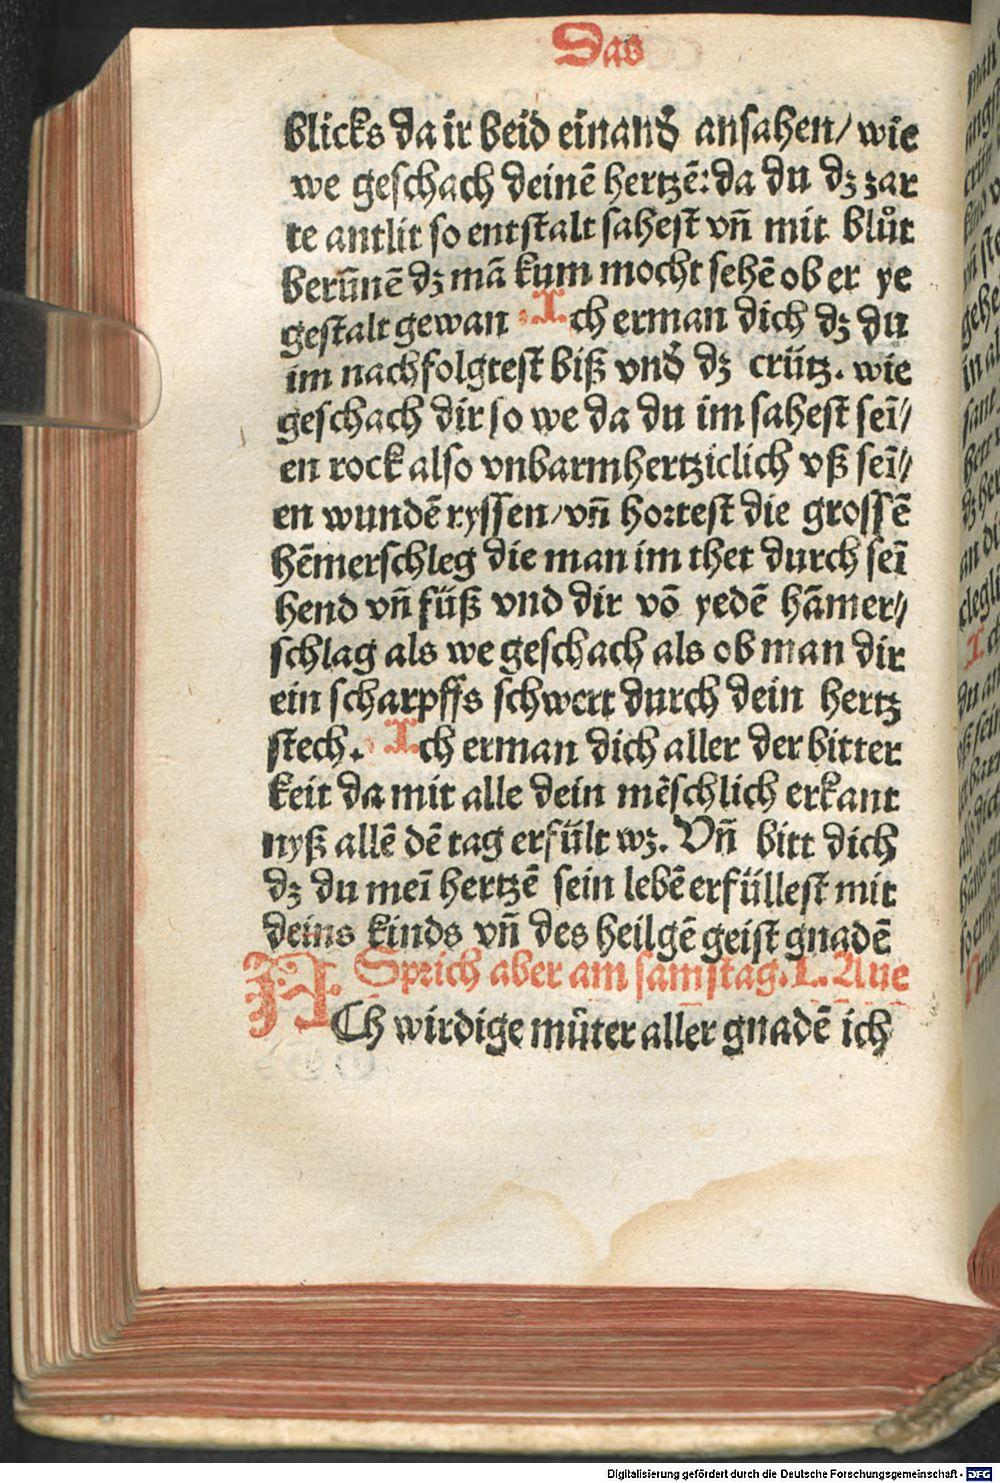 Das
blicks da ir beid einand᷑ ansahen/ wie
we geschach deinē hertzē: da du dz zar
te antlit so entstalt sahest vn̄ mit blůt
berūnē dz mā kum mocht sehē ob er ye
gestalt gewan Ich erman dich dz du
im nachfolgtest biß vnd᷑ dz crütz. wie
geschach dir so we da du im sahest seī//
en rock also vnbarmhertziclich vß seī//
en wundē ryssen/ vn̄ hortest die grossē
hēmerschleg die man im thet durch seī
hend vn̄ füß vnd dir vō yedē hāmer//
schlag als we geschach als ob man dir
ein scharpffs schwert durch dein hertz
stech. Ich erman dich aller der bitter
keit da mit alle dein mēschlich erkant
nyß allē dē tag erfült wz. Vn̄ bitt dich
dz du meī hertzē sein lebē erfüllest mit
deins kinds vn̄ des heilgē geist gnadē
Sprich aber am samstag. L. Aue
ACh wirdige můter aller gnadē ich
Digitalisierung gefördert durch die Deutsche Forschungsgemeinschaft - DFG